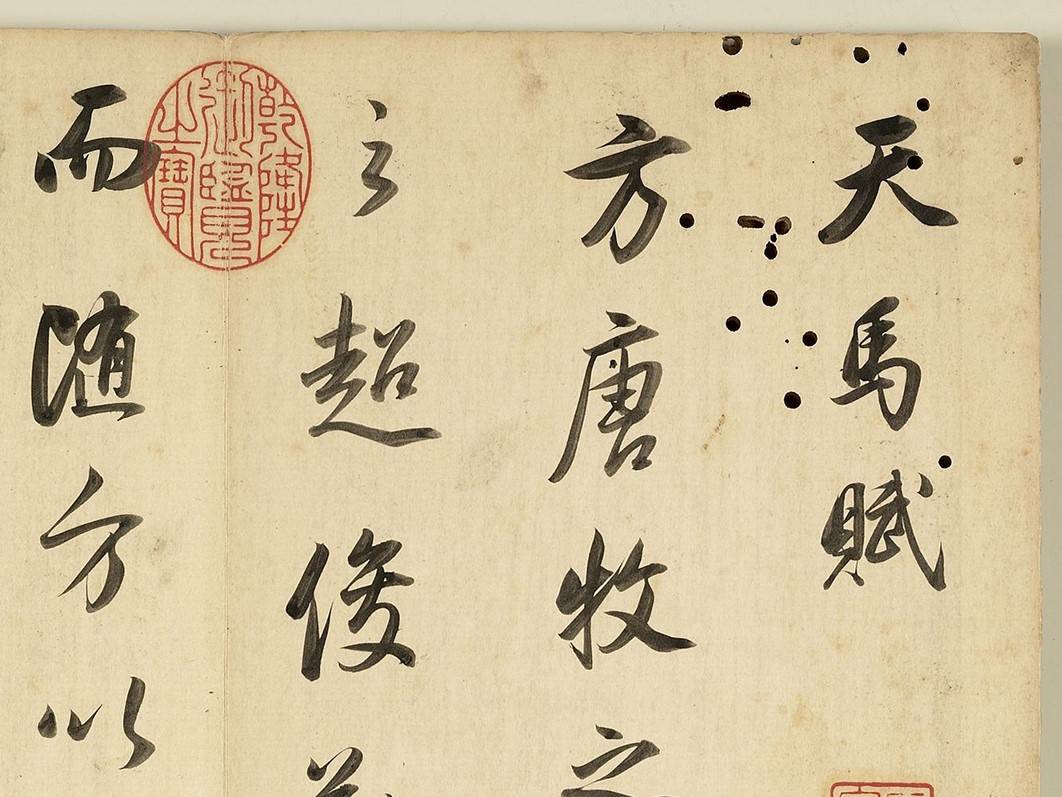 天馬賦
方唐牧之
之超俊
乾隆御覽之寶
而随方以